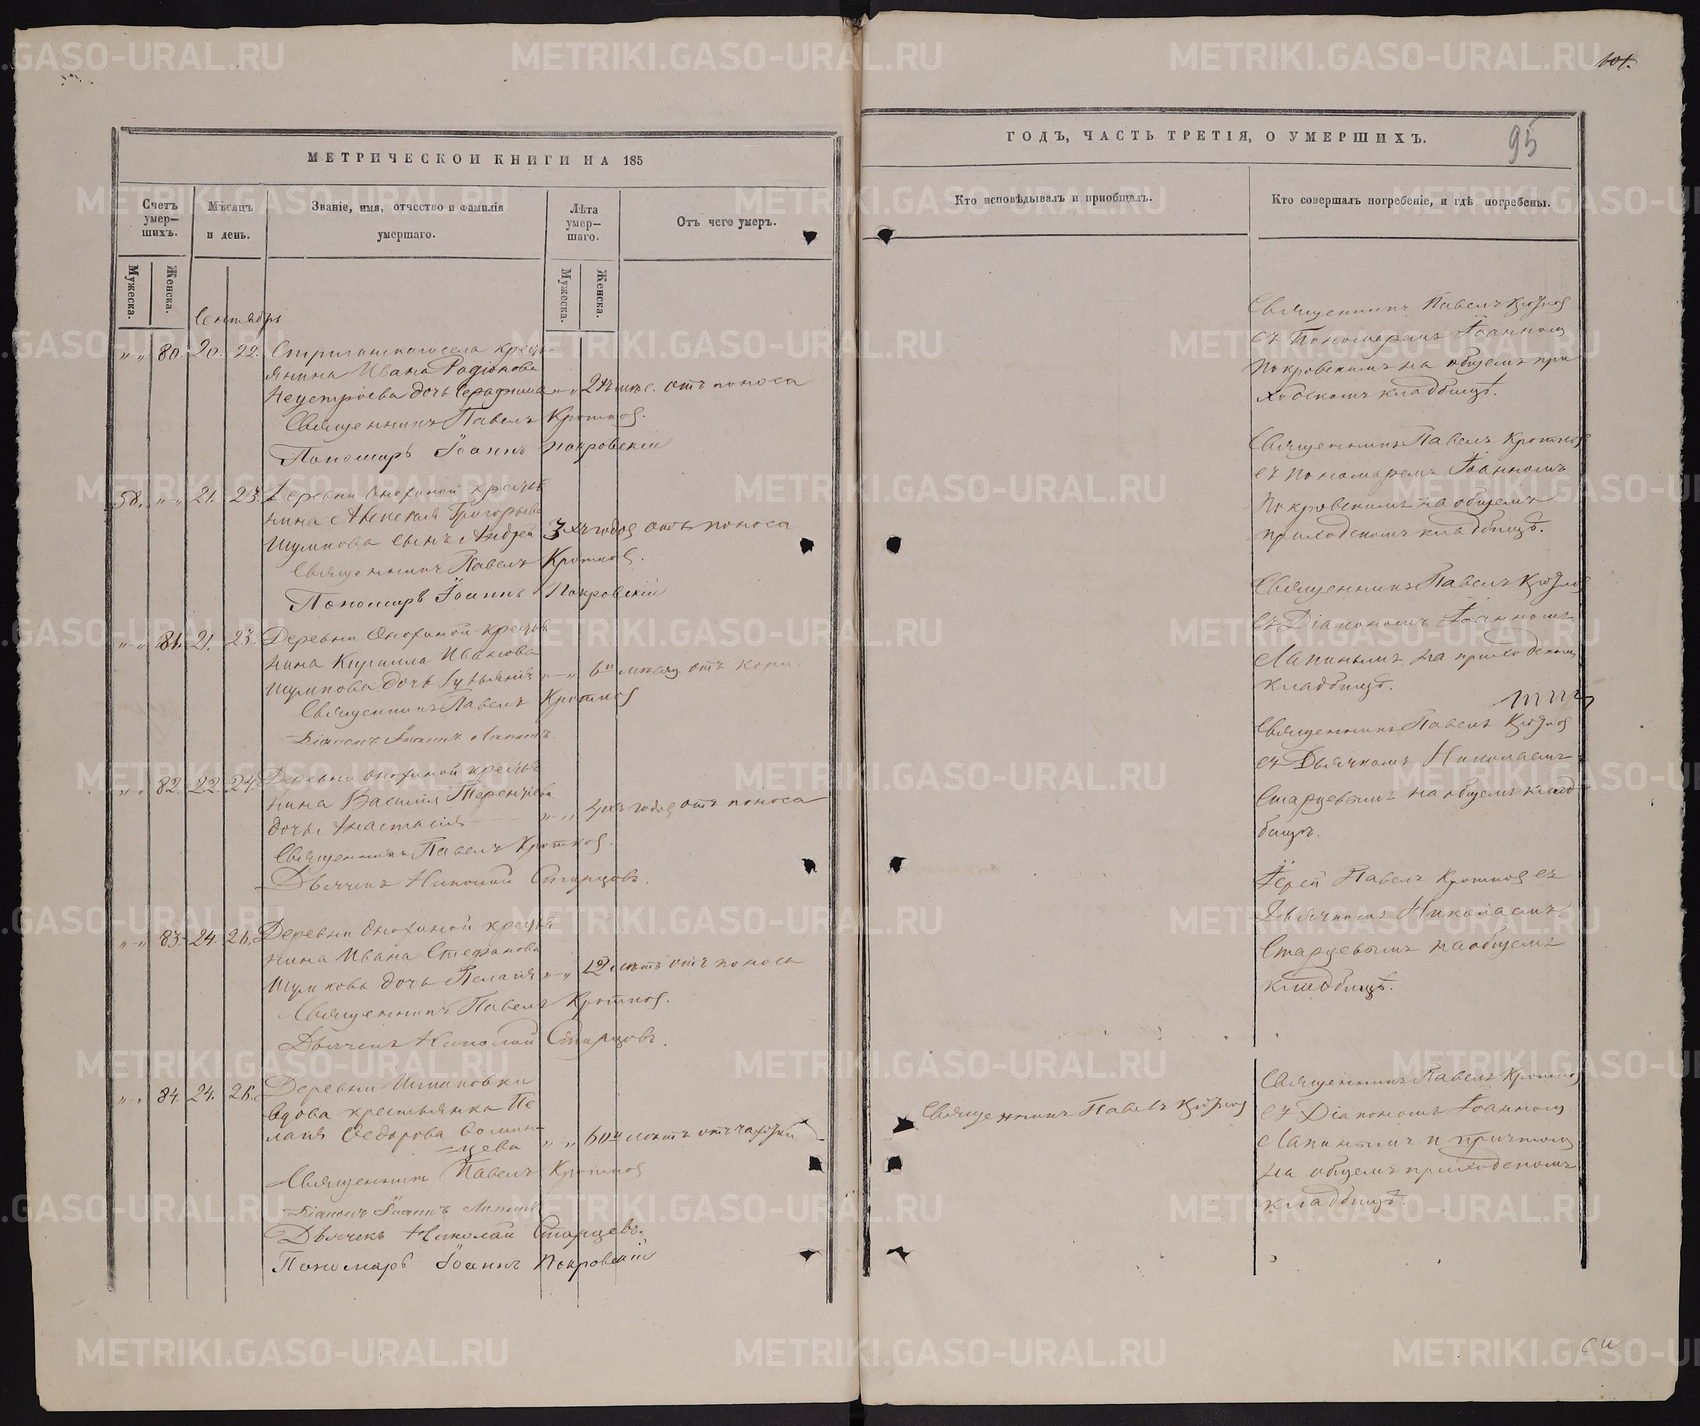 METRIKI.GASO-URAL.RU
101.
95
МЕТРИЧЕСКОЙ КНИГИ НА 185
Счетъ умер—шихъ.
Мѣсяцъ и день.
Званіе, имя, отчество и фамилія умершаго.
Лѣта умер—шаго.
Отъ чего умеръ.
Мужеска.
Женска.
Мужеска.
Женска.
Сентябрь
80. 20. 22. Стриганскаго села кресть-
янина Ивана Родіонова
Неустроева дочь Серафима отъ поноса
Священникъ Павелъ Кротковъ.
Пономарь Іоаннъ Покровскій
58. 21. 23. Деревни Онохиной крестья
нина Григорьева
Шумкова сынъ Андрей 3хъ годовъ отъ поноса
Священникъ Павелъ Кротковъ.
Пономарь Іоаннъ Покровскій
81. 21. 23. Деревни Онохиной крестья
нина Кирилла Иванова
Шумкова дочь 6и мѣсяц. отъ кори
Священникъ Павелъ Кротковъ
Діаконъ Іоаннъ Лапинъ.
82. 22. 24. Деревни Онохиной крестья
нина Василія Терентьева
дочь Анастасія годовъ отъ поноса
Священникъ Павелъ Кротковъ.
Дьячекъ Николай Старцовъ.
83. 24. 26. Деревни Онохиной крестья
нина Ивана Стефанова
Шумкова дочь Пелагія лѣтъ отъ поноса
Священникъ Павелъ Кротковъ.
Дьячекъ Николай Старцовъ.
84. 24. 26. Деревни
вдова крестьянка Пе
лагія Ѳедорова
=цева 60и лѣтъ отъ чахотки
Священникъ Павелъ Кротковъ
Діаконъ Іоаннъ Лапинъ
Дьячекъ Николай Старцевъ.
Пономарь Іоаннъ Покровскій
ГОДЪ, ЧАСТЬ ТРЕТІЯ, О УМЕРШИХЪ.
Кто исповѣдывалъ и пріобщалъ.
Кто совершалъ погребеніе, и гдѣ погребены.
Священникъ Павелъ Кротковъ
съ Пономаремъ Іоанномъ
Покровскимъ на общемъ при
ходскомъ кладбищѣ.
Священникъ Павелъ Кротковъ
съ пономаремъ Іоанномъ
Покровскимъ на общемъ
приходскомъ кладбищѣ.
Священникъ Павелъ Кротковъ
съ Діакономъ Іоанномъ
Лапинымъ на приходскомъ
кладбищѣ.
Священникъ Павелъ Кротковъ
съ Дьячкомъ Николаемъ
Старцевымъ на общемъ клад
бищѣ.
Іерей Павелъ Кротковъ съ
Дьячкомъ Николаемъ
Старцевымъ на общемъ
кладбищѣ.
Священникъ Павелъ Кротковъ
Священникъ Павелъ Кротковъ
съ Діакономъ Іоанномъ
Лапинымъ и причтомъ
на общемъ приходскомъ
кладбищѣ.